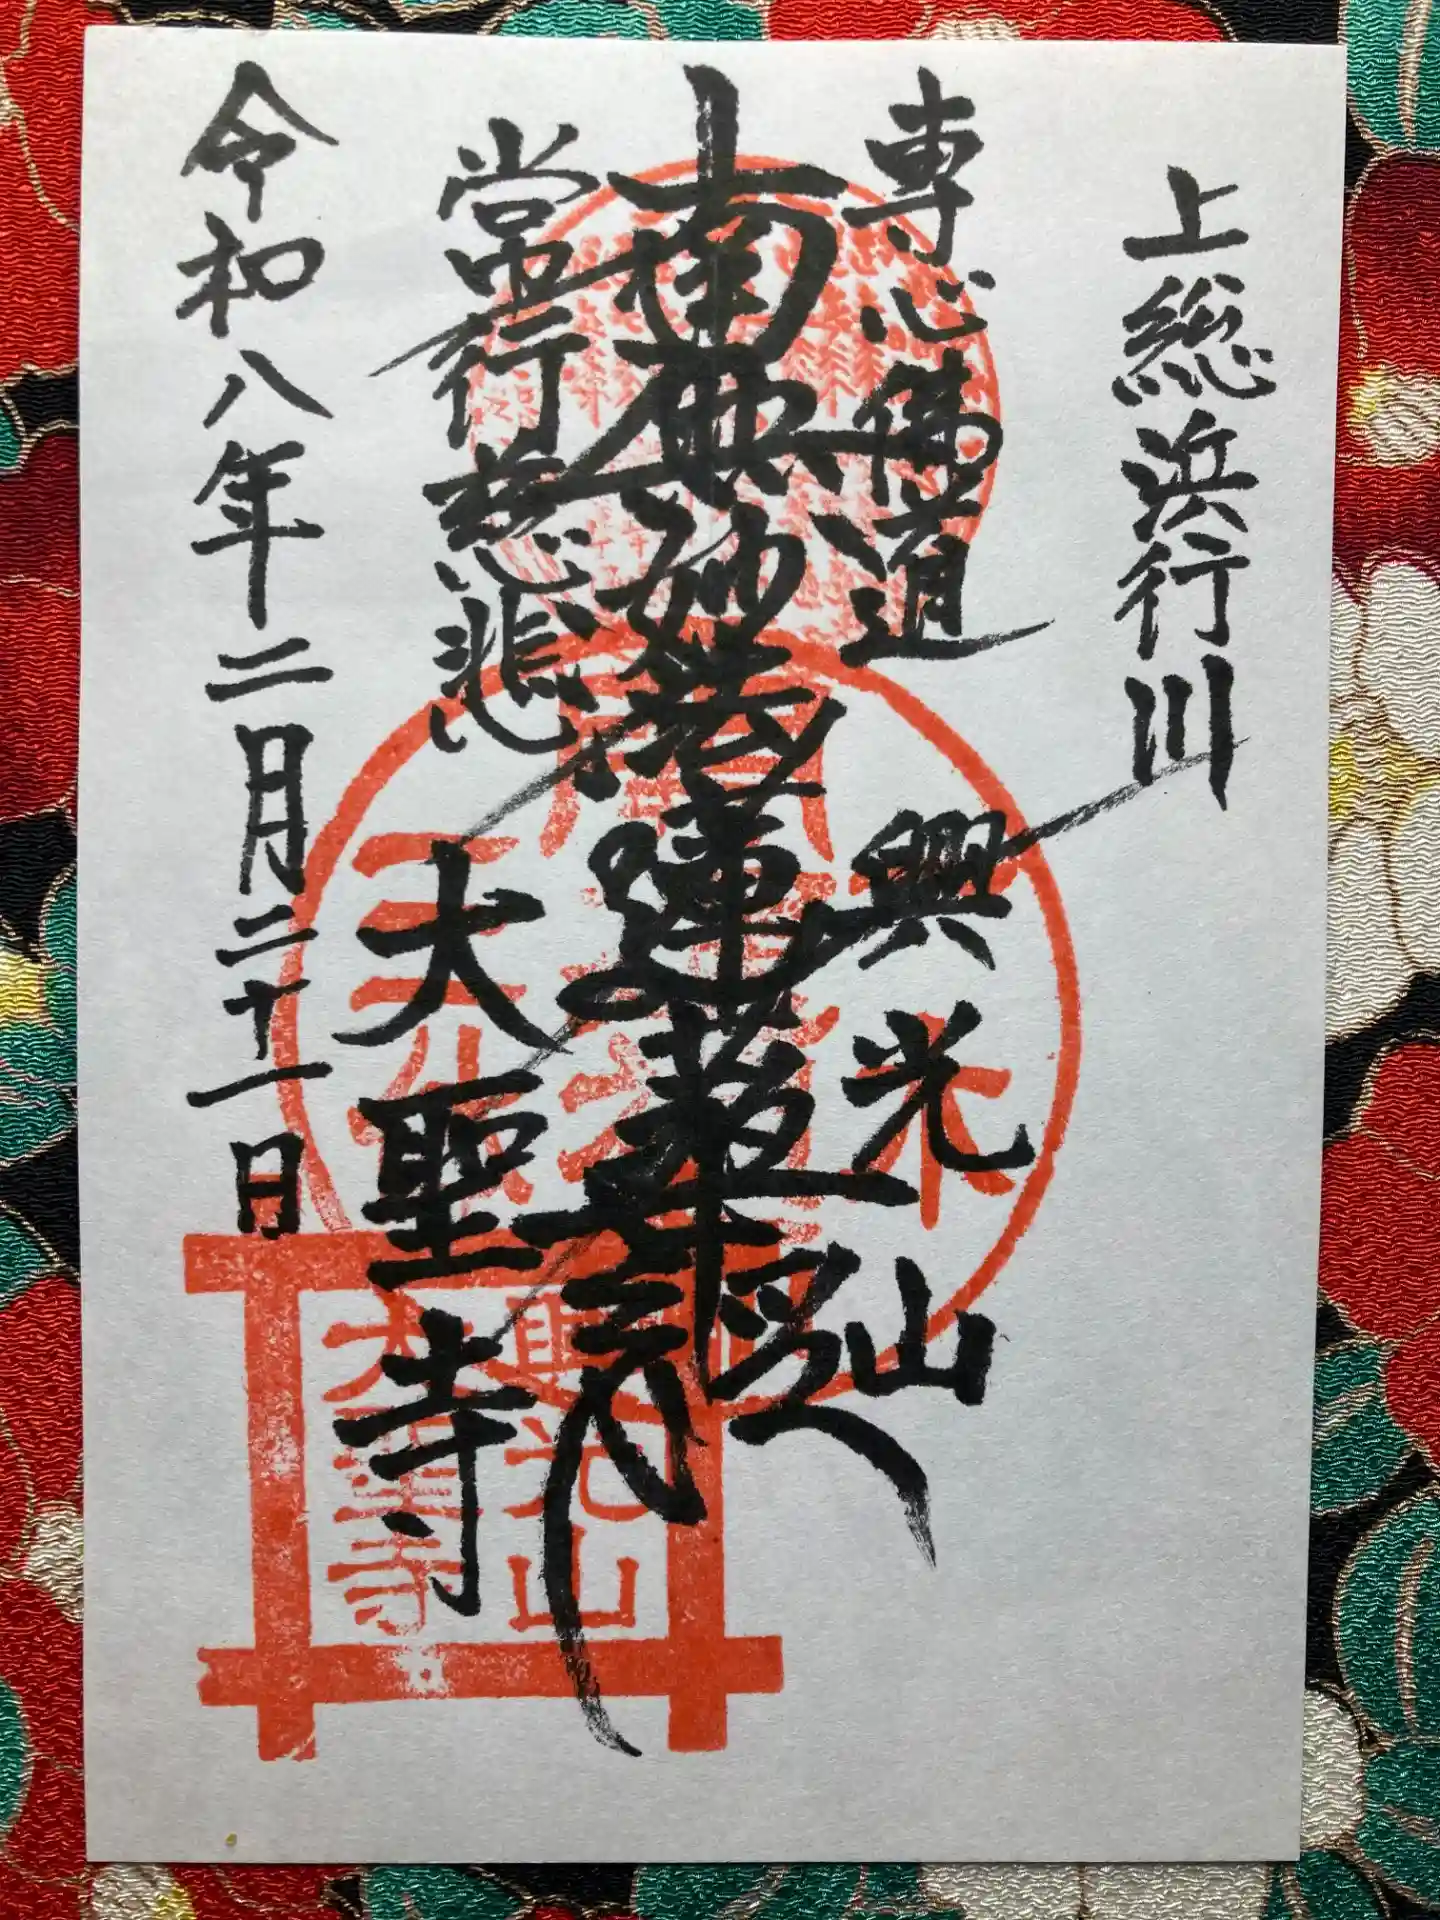 上総浜行川
専心佛道
興光山
南無妙法蓮華経
常行慈悲
大聖寺
令和八年二月二十一日
興光山
大聖寺